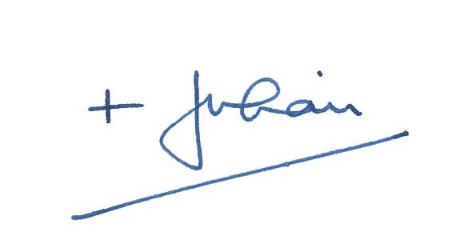 + Julian